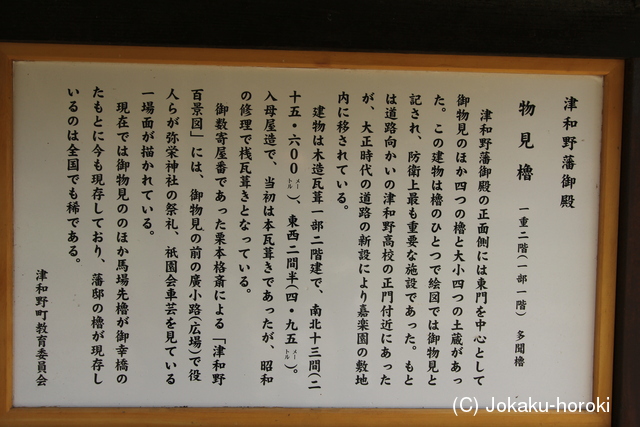 津和野藩御殿
物見櫓　一重二階(一部一階)　多聞櫓
津和野藩御殿の正面側には東門を中心として
御物見のほか四つの櫓と大小四つの土蔵があっ
た。この建物は櫓のひとつで絵図では御物見と
記され、防衛上最も重要な施設であった。もと
は道路向かいの津和野高校の正門付近にあった
が、大正時代の道路の新設により嘉楽園の敷地
内に移されている。
建物は木造瓦葺一部二階建で、南北十三間(二
十五・六〇〇メートル)、東西二間半(四・九五メートル)。
入母屋造で、当初は本瓦葺きであったが、昭和
の修理で桟瓦葺きとなっている。
御数寄屋番であった栗本格斎による「津和野
百景図」には、御物見の前の廣小路(広場)で役
人らが弥栄神社の祭礼、祇園会車芸を見ている
一場面が描かれている。
現在では御物見ののほか馬場先櫓が御幸橋の
たもとに今も現存しており、藩邸の櫓が現存し
いるのは全国でも稀である。
津和野町教育委員会
(C) Jokaku-horoki